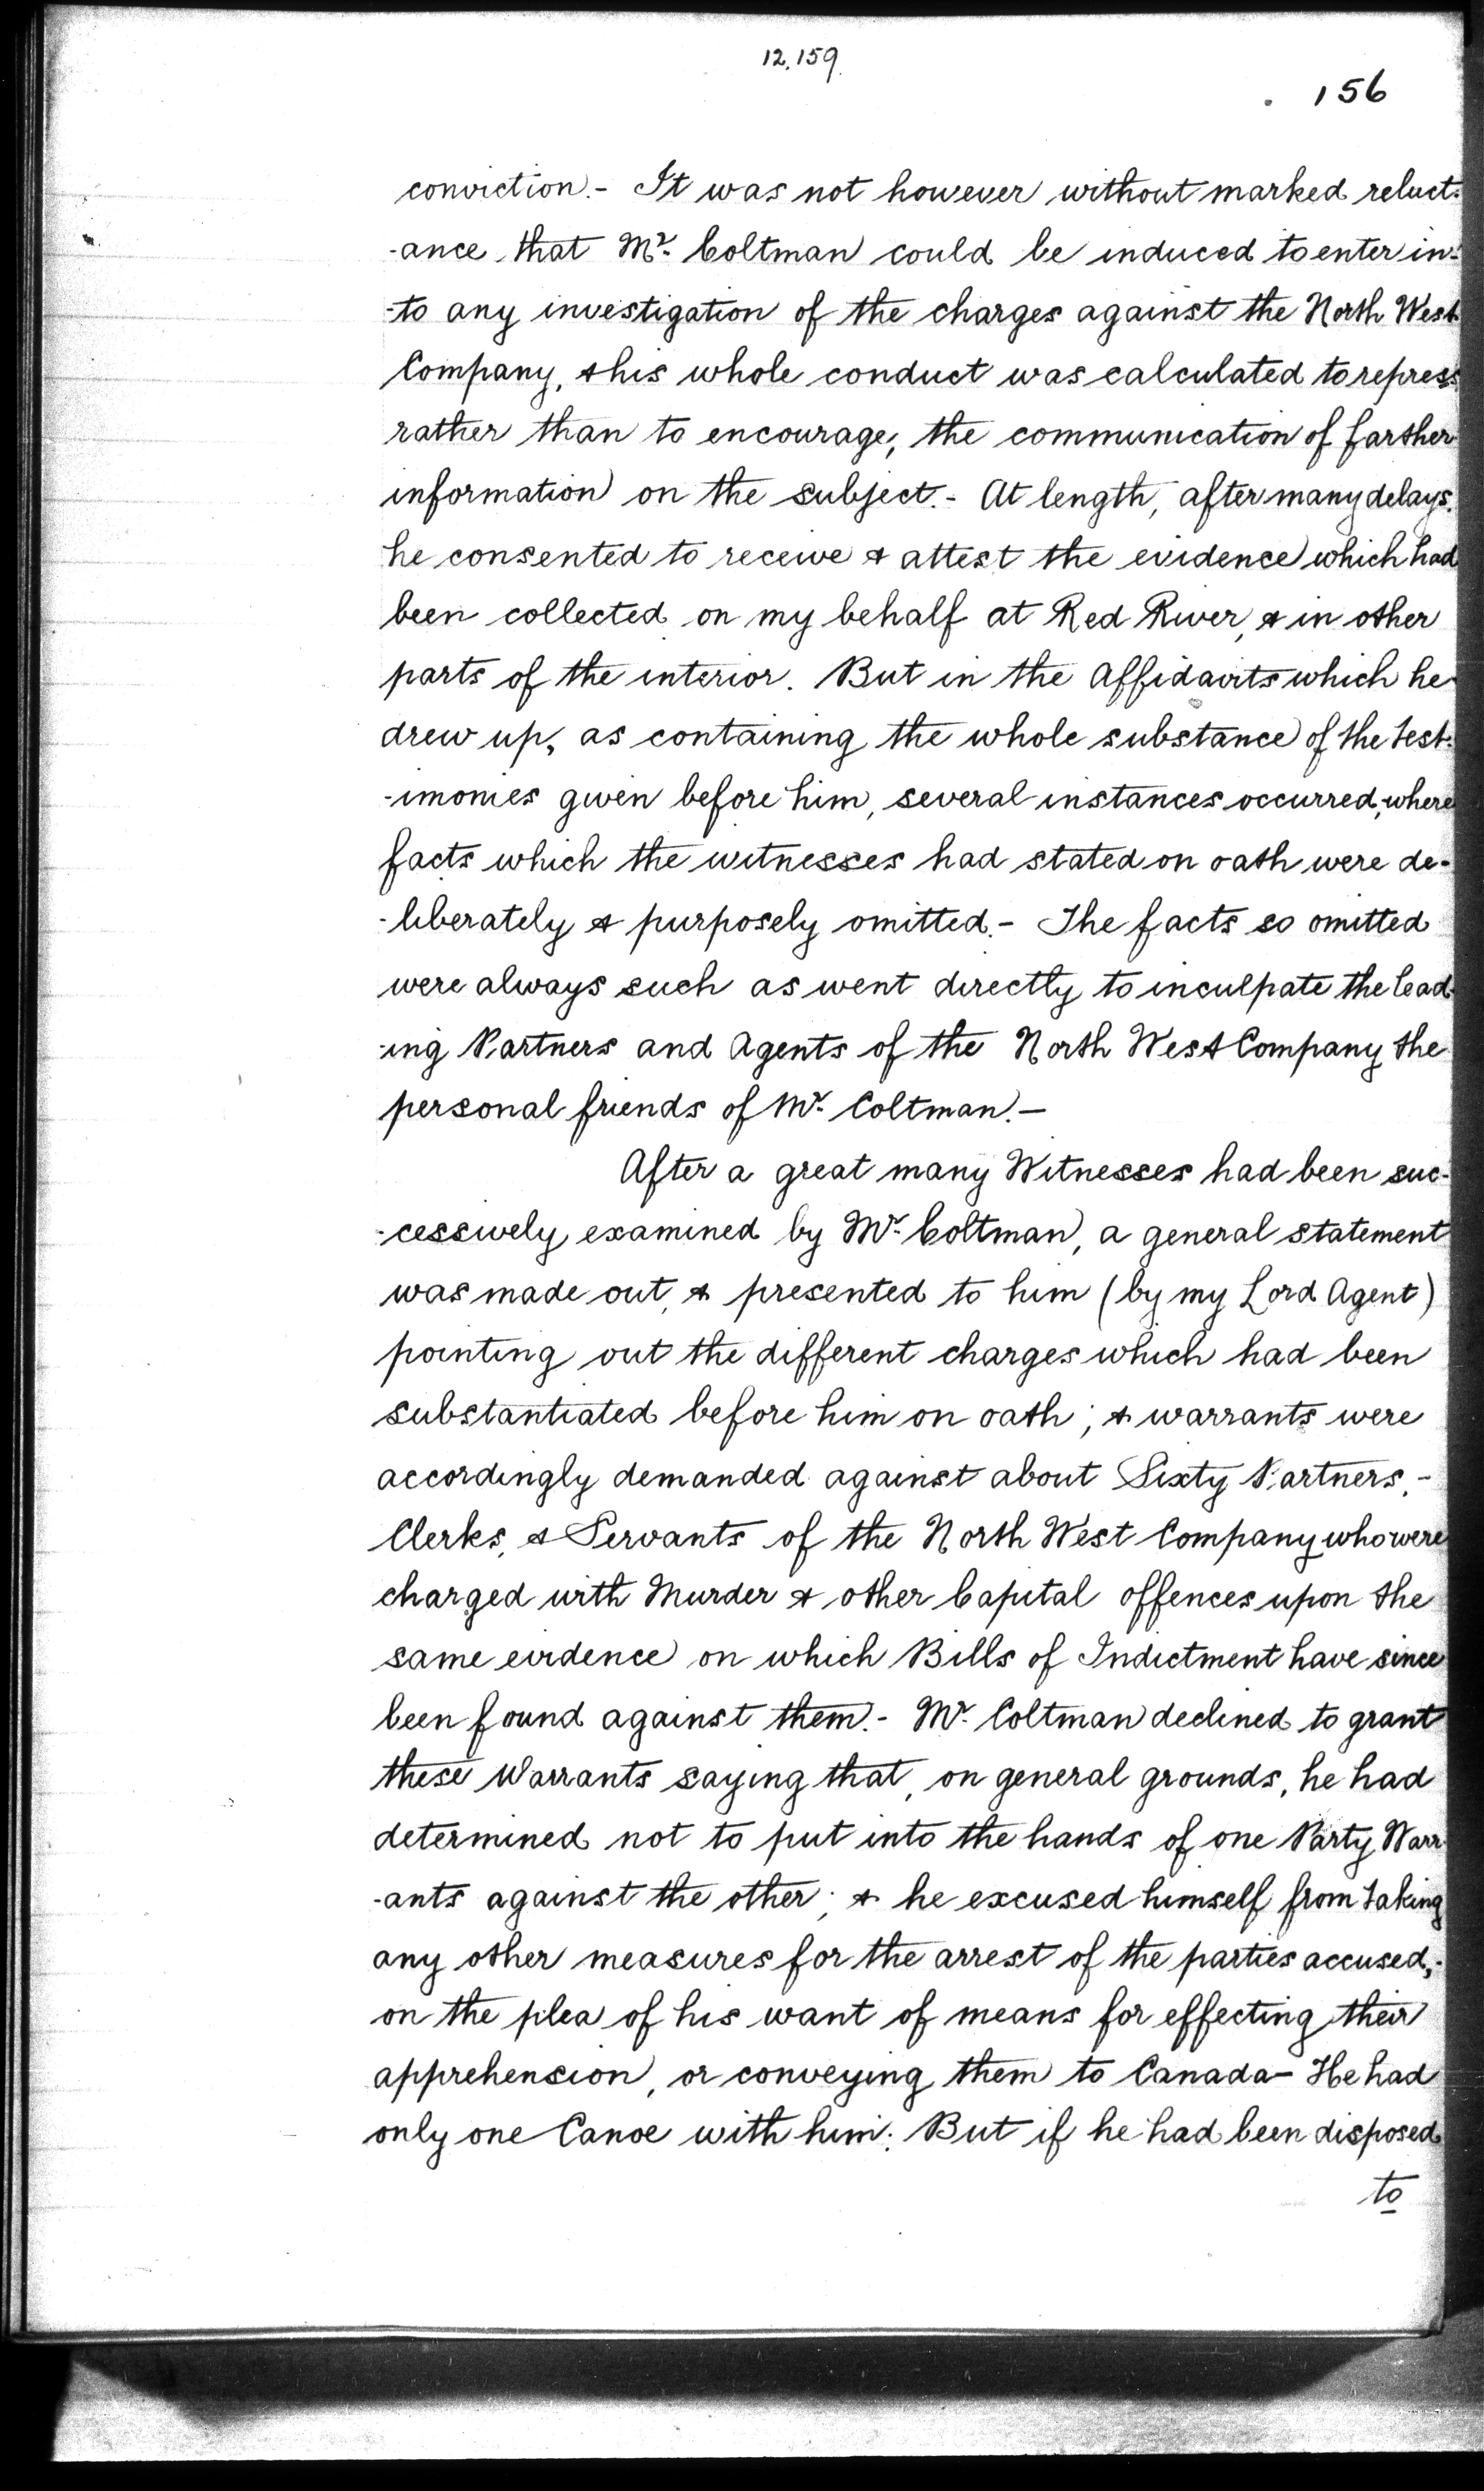 12.159.
156
conviction.- It was not however without marked reluct-
-ance that Mr. Coltman could be induced to enter in-
-to any investigation of the charges against the North West
Company, & his whole conduct was calculated to repress
rather than to encourage, the communication of farther
information on the subject.- At length, after many delays.
he consented to receive & attest the evidence which had
been collected on my behalf at Red River, & in other
parts of the interior. But in the Affidavits which he
drew up, as containing the whole substance of the test-
-imonies given before him, several instances occurred, where
facts which the witnesses had stated on oath were de-
-liberately & purposely omitted.- The facts so omitted
were always such as went directly to inculpate the lead-
-ing Partners and Agents of the North West Company the
personal friends of Mr. Coltman.-
After a great many Witnesses had been suc-
-cessively examined by Mr. Coltman, a general statement
was made out, & presented to him (by my Lord Agent)
pointing out the different charges which had been
substantiated before him on oath; & warrants were
accordingly demanded against about Sixty Partners,-
Clerks, & Servants of the North West Company who were
charged with Murder & other Capital offences upon the
same evidence on which Bills of Indictment have since
been found against them.- Mr. Coltman declined to grant
these Warrants saying that, on general grounds, he had
determined not to put into the hands of one Party Warr-
-ants against the other; & he excused himself from taking
any other measures for the arrest of the parties accused,-
on the plea of his want of means for effecting their
apprehension, or conveying them to Canada- He had
only one Canoe with him: But if he had been disposed
to